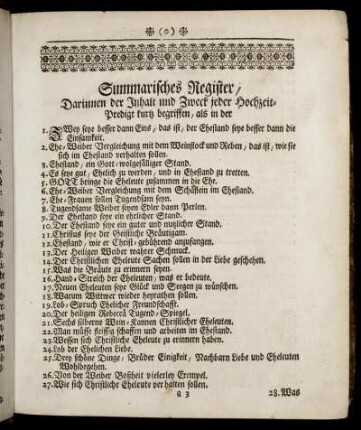 (0)
Summarisches Register/
Darinnen der Inhalt und Zweck jeder Hochzeit-
Predigt kurtz begriffen/ als in der
1. ZWey seye besser dann Eins/ das ist/ der Ehestand seye besser dann die
Einsamkeit.
2. Ehe-Weiber Vergleichung mit dem Weinstock und Reben/ das ist/ wie sie
sich im Ehestand verhalten sollen.
3. Ehestand/ ein Gott-wolgefälliger Stand.
4. Es seye gut/ Ehelich zu werden/ und in Ehestand zu tretten.
5. GOTT bringe die Eheleute zusammen in die Ehe.
6. Ehe-Weiber Vergleichung mit dem Schäflein im Ehestand.
7. Ehe-Frauen sollen Tugendsam seyn.
8. Tugendsame Weiber seyen Edler dann Perlen.
9. Der Ehestand seye ein ehrlicher Stand.
10. Der Ehestand seye ein guter und nutzlicher Stand.
11. Christus seye der Geistliche Bräutigam.
12. Ehestand/ wie er Christ-gebührend anzufangen.
13. Der Heiligen Weiber wahrer Schmuck.
14. Der Christlichen Eheleute Sachen sollen in der Liebe geschehen.
15. Was die Bräute zu erinnern seyen.
16. Hand-Streich der Eheleuten/ was er bedeute.
17. Neuen Eheleuten seye Glück und Seegen zu wünschen.
18. Warum Wittwer wieder heyrathen sollen.
19. Lob-Spruch Ehelicher Freundschafft.
20. Der heiligen Rebeccä Tugend-Spiegel.
21. Sechs silberne Wein-Kannen Christlicher Eheleuten.
22. Man müsse fleissig schaffen und arbeiten im Ehestand.
23. Wessen sich Christliche Eheleute zu erinnern haben.
24. Lob der Ehelichen Liebe.
25. Drey schöne Dinge/ Brüder Einigkeit/ Nachbarn Liebe und Eheleuten
Wohlbegehen.
26. Von der Weiber Boßheit vielerley Exempel.
27. Wie sich Christliche Eheleute verhalten sollen.
a 3
28. Was